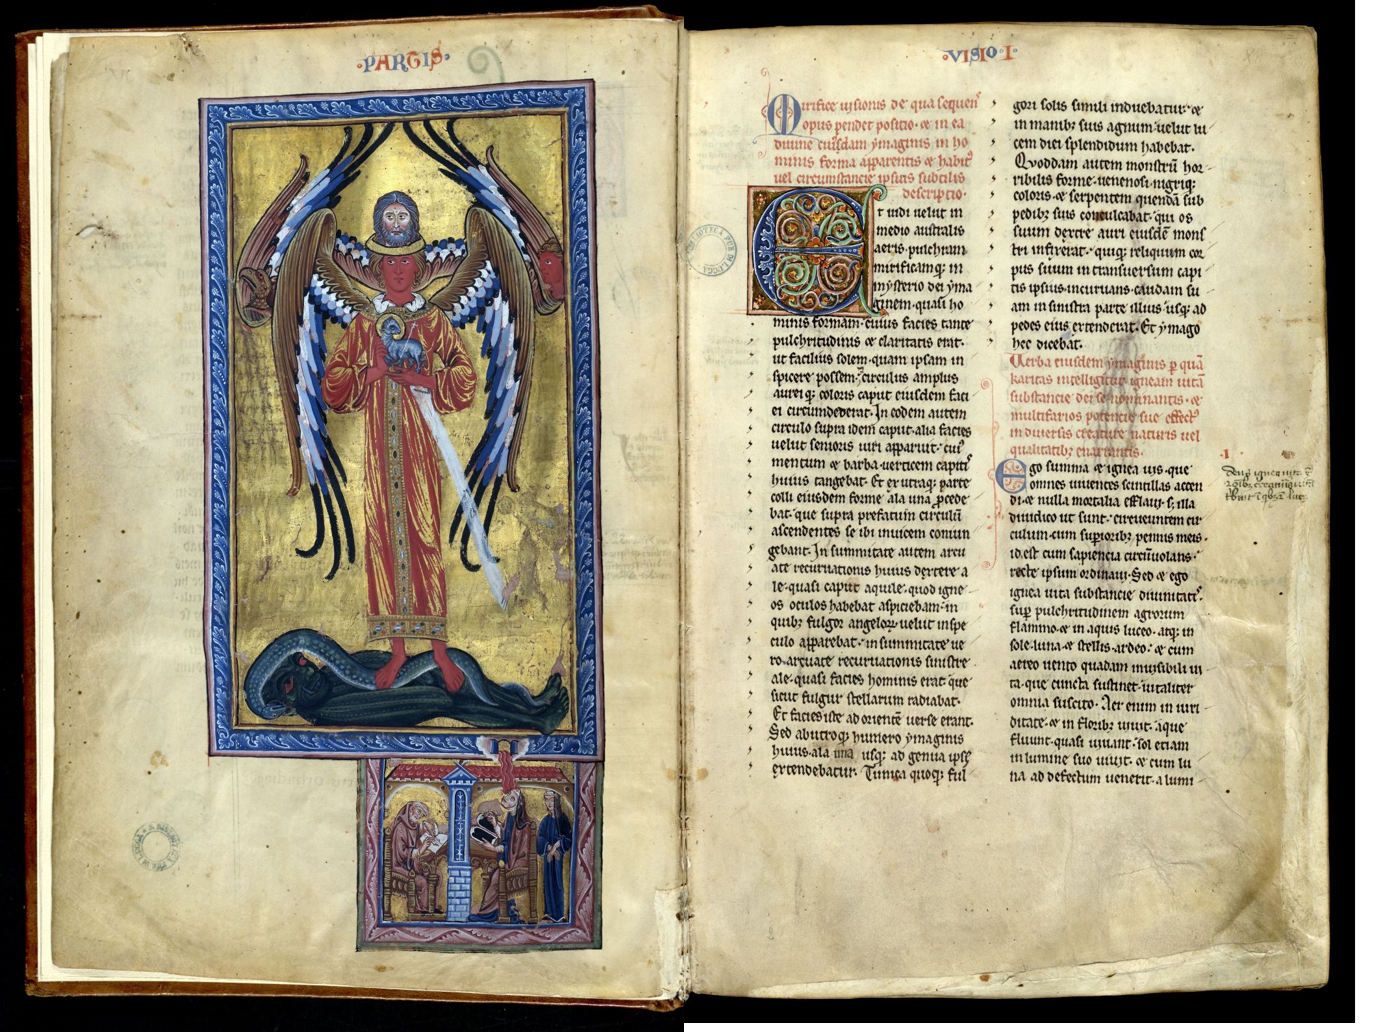 ·PARTIS·
·VISIO·I·
Mirifice uisionis de qua sequens
opus pendet positio· & in ea
diuine cuiusdam ymaginis in ho
minis forma apparentis & habit9
uel circumstancie ipsius subtilis
descriptio·
Et uidi uelut in
medio australis
aeris pulchram
mirificamq; in
mysterio dei yma
ginem· quasi ho
minis formam· cuius facies tante
pulchritudinis & claritatis erat·
ut facilius solem· quam ipsam in
spicere possem· circulus amplus
aureiq; coloris caput eiusdem faci
ei circumdederat· In eodem autem
circulo supra idem caput· alia facies
uelut senioris uiri apparuit· cui9
mentum & barba uerticem capitis
huius tangebat· Et ex utraq; parte
colli eiusdem forme ala una pcede
bat· que supra prefatum circulū
ascendentes se ibi inuicem coniun
gebant· In summitate autem arcu
ate recuruationis huius dextere a
le· quasi caput aquile· quod igne
os oculos habebat aspiciebam· in
quibȝ fulgor angeloꝝ uelut in spe
culo apparebat· in summitate ue
ro arcuate recuruationis sinistre
ale· quasi facies hominis erat que
sicut fulgur stellarum radiabat·
Et facies iste ad orientē uerse erant·
Sed ab utroq; humero ymaginis
huius· ala una usq; ad genua ipsius
extendebatur· Tunica quoq; ful
gori solis simili induebatur· &
in manibȝ suis agnum· uelut lu
cem diei splendidum habebat·
Quoddam autem monstrū hor
ribilis forme· uenenosi nigriq;
coloris· & serpentem quendā sub
pedibȝ suis conculcabat· qui os
suum dextre auri eiusdē mons
tri infixerat· quiq; reliquum cor
pus suum in transuersum capi
tis ipsius incuruans· caudam su
am in sinistra parte illius· usq; ad
pedes eius extenderat· Et ymago
hec dicebat·
Uerba eiusdem ymaginis p quā
karitas intelligitur· igneam uitā
substancie dei se nominantis· &
multifarios potencie sue effect9
in diuersis creature naturis uel
qualitatibȝ enarrantis·
·I·
Ego summa & ignea uis· que
omnes uiuentes scintillas accen
di· & nulla mortalia efflaui· s; illa
diiudico ut sunt· circueuntem cir
culum cum supioribȝ pennis meis·
id est cum sapiencia circūuolans·
recte ipsum ordinaui· Sed & ego
ignea uita substancie diuinitatis·
sup pulchritudinem agrorum
flammo· & in aquis luceo· atq; in
sole· luna· & stellis ardeo· & cum
aereo uento quadam inuisibili ui
ta· que cuncta sustinet· uitaliter
omnia suscito· Aer enim in uiri
ditate· & in floribȝ uiuit· aque
fluunt· quasi uiuant· sol etiam
in lumine suo uiuit· & cum lu
na ad defectum uenerit· a lumi